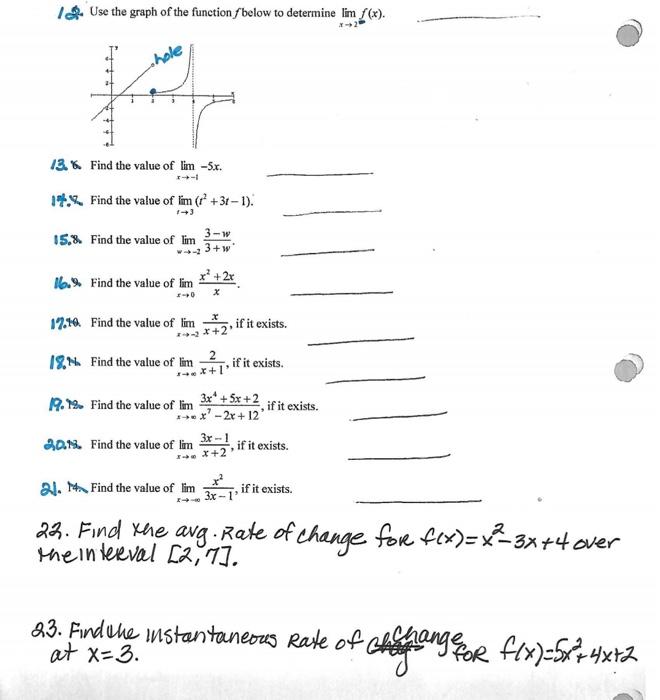 12. Use the graph of the function f below to determine lim f(x).
x→2
hole
13. Find the value of lim -5x.
x→-1
14. Find the value of lim (t² + 3t – 1).
t→3
15. 8. Find the value of lim 3 – w / 3 + w.
w→-2
16. 9. Find the value of lim x² + 2x / x.
x→0
17. 10. Find the value of lim x / x + 2, if it exists.
x→-2
18. 11. Find the value of lim 2 / x + 1, if it exists.
x→∞
19. 12. Find the value of lim 3x⁴ + 5x + 2 / x⁷ – 2x + 12, if it exists.
x→∞
20. 13. Find the value of lim 3x – 1 / x + 2, if it exists.
x→∞
21. 14. Find the value of lim x² / 3x – 1, if it exists.
x→-∞
22. Find the avg. Rate of change for f(x)=x²-3x+4 over
the interval [2,7].
23. Find the instantaneous Rate of change for f(x)=5x²+4x+2
at x=3.